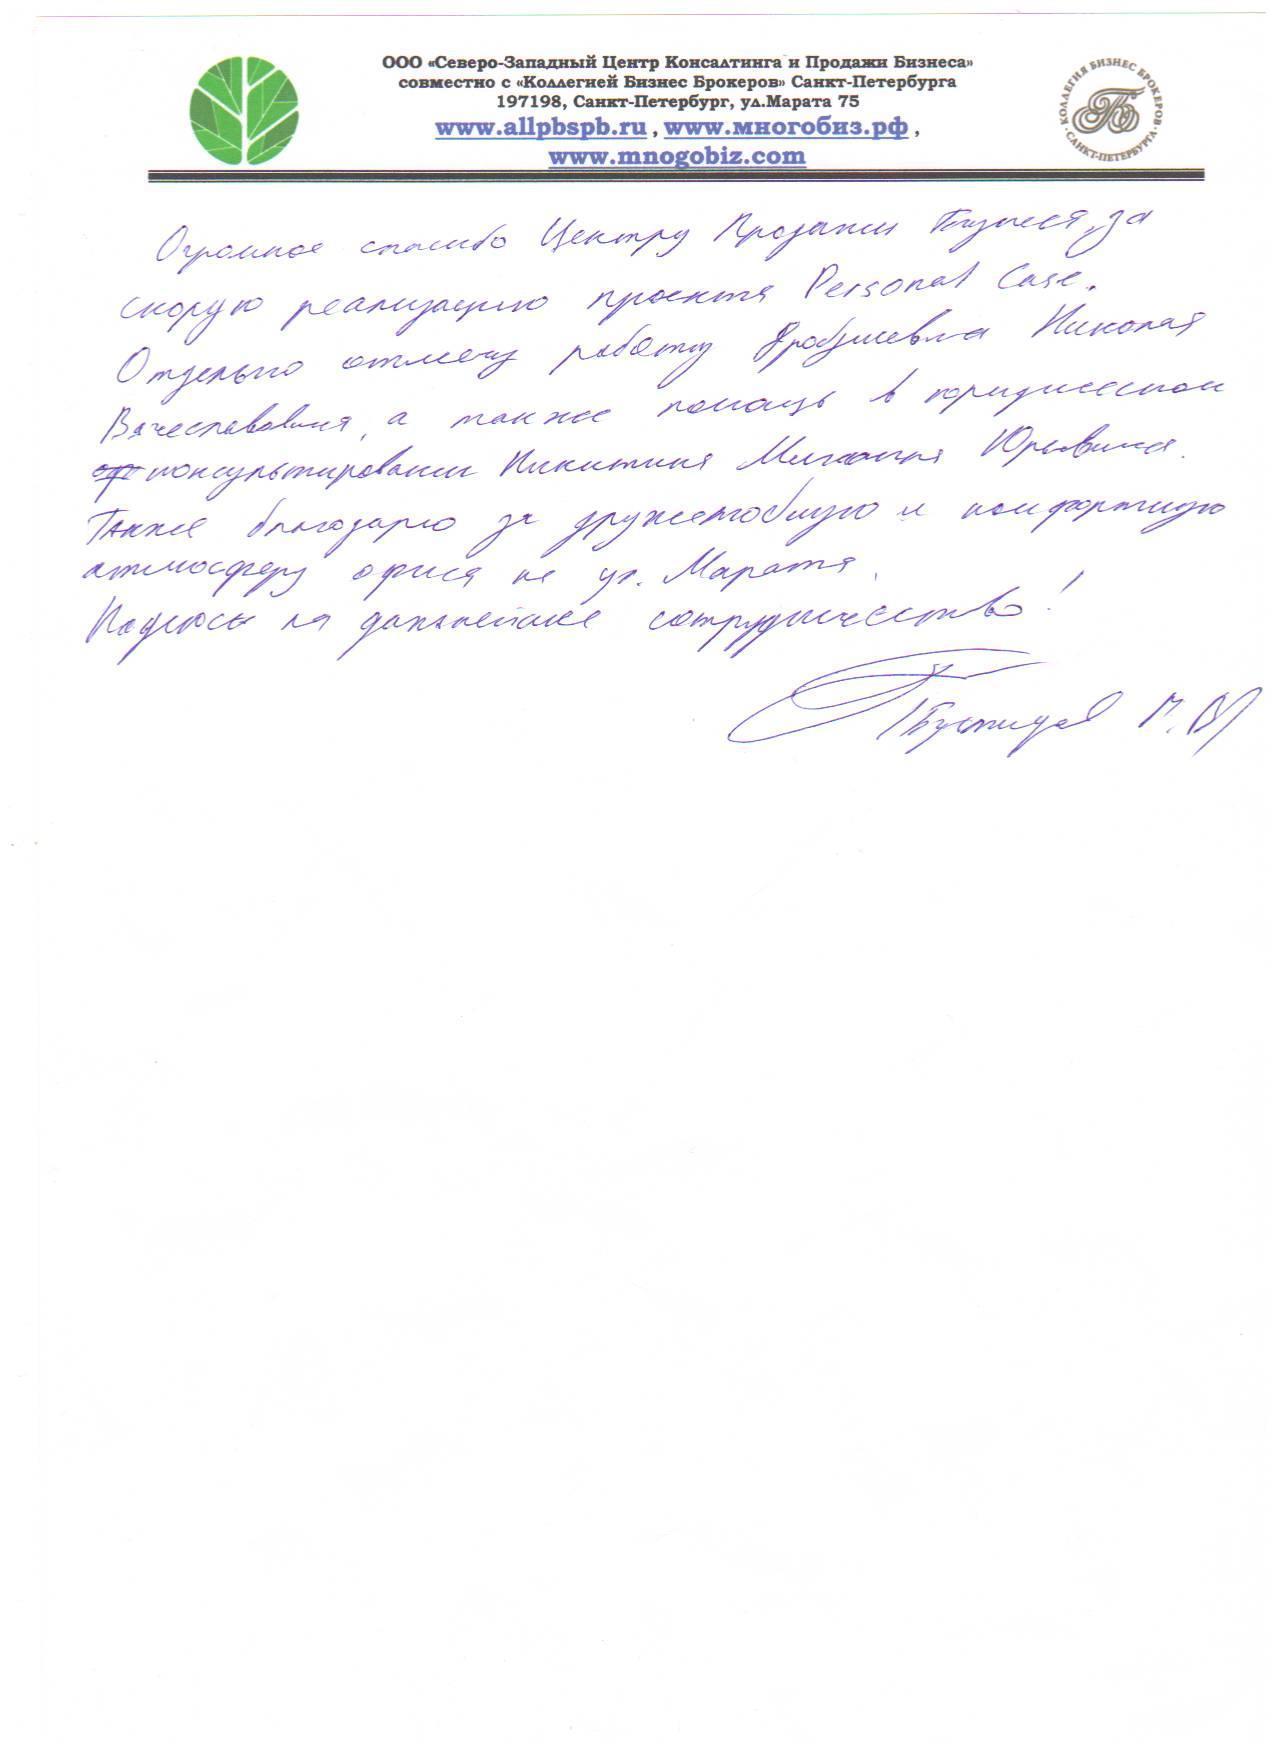 ООО «Северо-Западный Центр Консалтинга и Продажи Бизнеса»
совместно с «Коллегией Бизнес Брокеров» Санкт-Петербурга
197198, Санкт-Петербург, ул.Марата 75
www.allpbspb.ru , www.многобиз.рф ,
www.mnogobiz.com
КОЛЛЕГИЯ БИЗНЕС БРОКЕРОВ
САНКТ-ПЕТЕРБУРГА
Огромное спасибо Центру Продажи Бизнеса, за
скорую реализацию проекта Personal Case.
Отдельно отмечу работу Николая
Вячеславовича, а также помощь в юридическом
консультировании Никитина Михаила Юрьевича.
Также благодарю за дружелюбную и комфортную
атмосферу офиса на ул. Марата.
Надеюсь на дальнейшее сотрудничество!